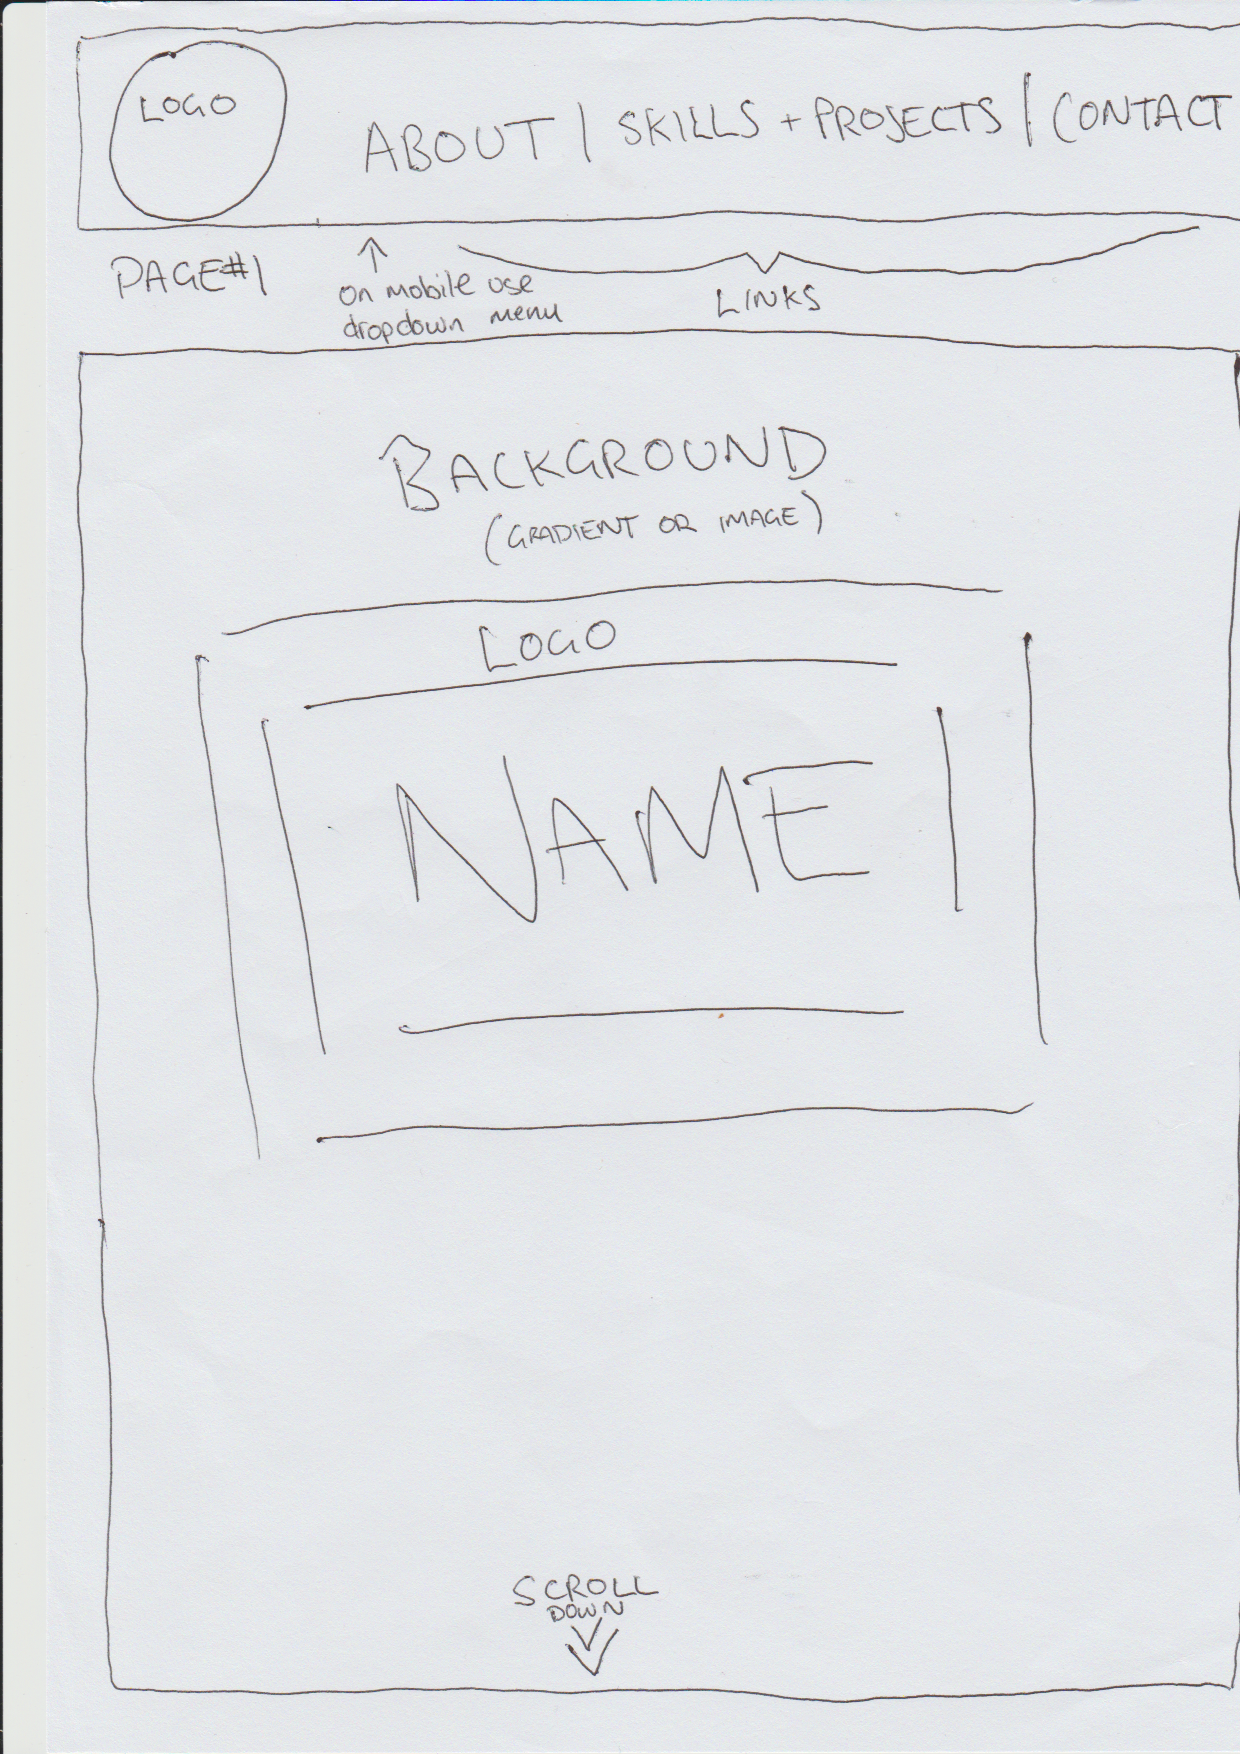 LOGO
ABOUT | SKILLS + PROJECTS | CONTACT
PAGE#1
on mobile use
dropdown menu
LINKS
BACKGROUND
(GRADIENT OR IMAGE)
LOGO
NAME
SCROLL
DOWN